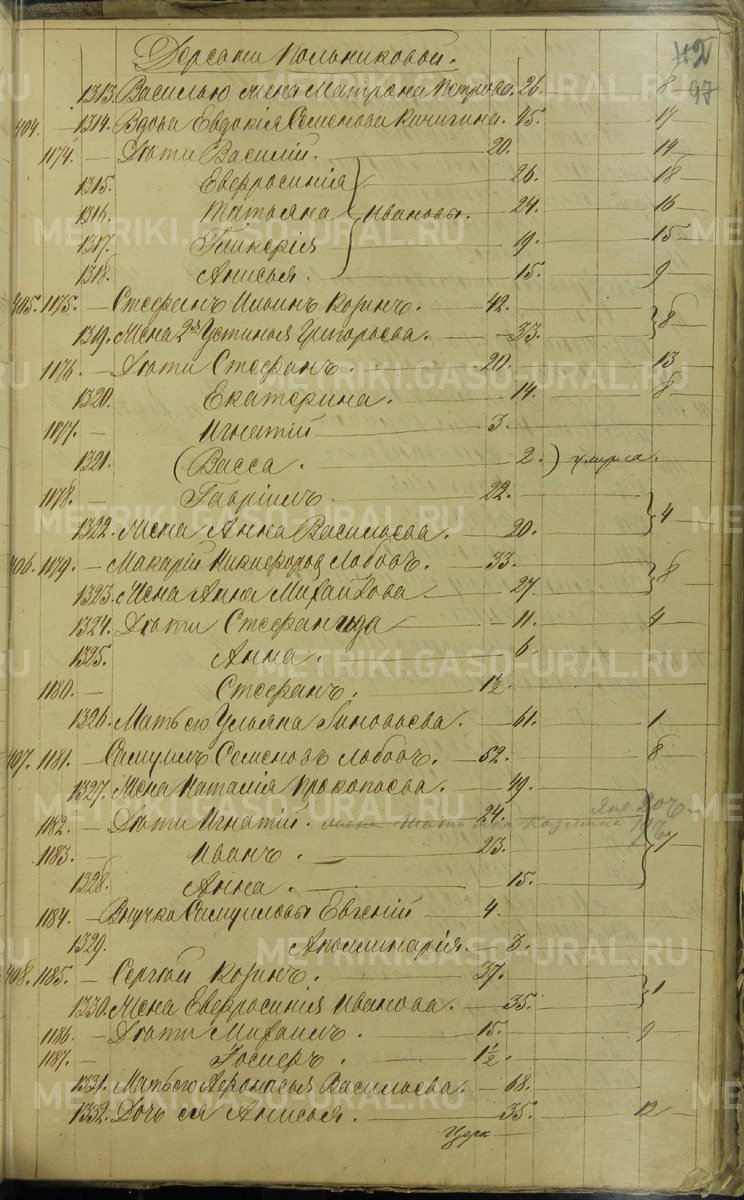 42
97
Деревни Кольниковой.
1313. Василью жена Матрона Петрова. 26. 8
404. 1314. Вдова Евдокія Семенова Кичигина. 45. 17
1174. Дѣти Василій. 20. 14
1315. Евфросинія 26. 18
1316. Татьяна Ивановы. 24. 16
1317. Гликерія 19. 15
1318. Анисья. 15. 9
405. 1175. Стефанъ Ильинъ Козинъ. 42.
1319. Жена 2я Устинья Григорьева. 33. 8
1176. Дѣти Стефанъ. 20. 13
1320. Екатерина. 14. 8
1177. Игнатій 3.
1321. (Васса. 2.) умерла.
1178. Гавріилъ. 22.
1322. Жена Анна Васильева. 20. 4
406. 1179. Макарій Никифоровъ Лобовъ. 33.
1323. Жена Анна Михайлова 27. 8
1324. Дѣти Стефанида 11. 4
1325. Анна. 6.
1180. Стефанъ. 1½.
1326. Мать его Ульяна Зиновьева. 61. 1
407. 1181. Самуилъ Семеновъ Лобовъ. 52. 8
1327. Жена Наталія Прокопьева. 49.
1182. Дѣти Игнатій. жена 24.
1183. Иванъ. 23. 7
1328. Анна. 15.
1184. Внучка Самуиловы Евгеній 4.
1329. Аполлинарія. 3.
408. 1185. Сергѣй Козинъ. 37.
1330. Жена Евфросинія Иванова. 35. 1
1186. Дѣти Михаилъ. 15. 9
1187. Іосифъ. 1½.
1331. Мать его Афонасья Васильева. 68.
1332. Дочь ея Анисья. 35. 12
METRIKI.GASO-URAL.RU